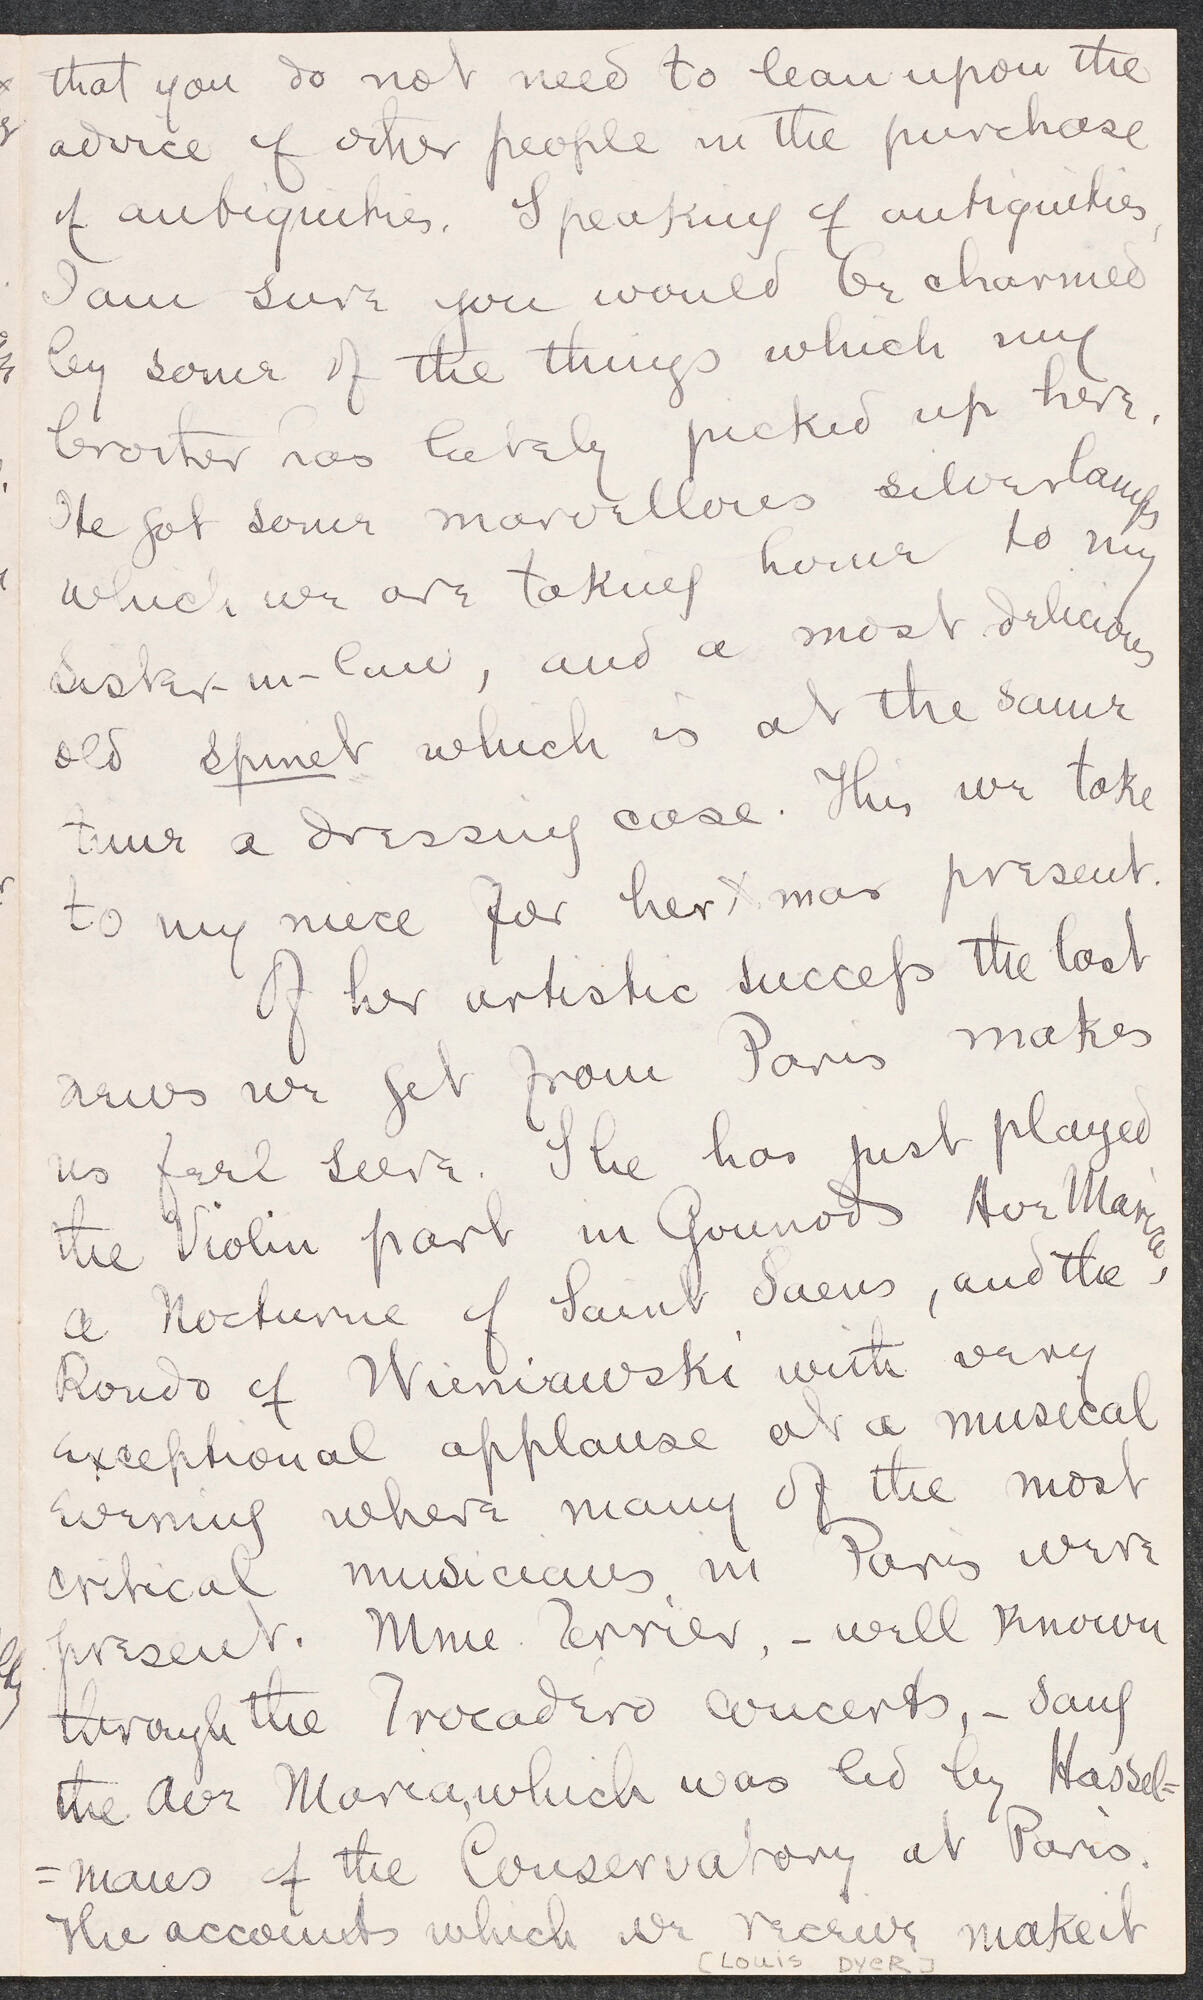 that you do not need to lean upon the
advice of other people in the purchase
of antiquities. Speaking of antiquities,
I am sure you would be charmed
by some of the things which my
brother has lately picked up here.
He got some marvellous silver lamps
which we are taking home to my
sister-in-law, and a most delicious
old spinet which is at the same
time a dressing case. This we take
to my niece for her Xmas present.
Of her artistic success the last
news we get from Paris makes
us feel sure. She has just played
the Violin part in Gounods Ave Maria,
a Nocturne of Saint Saens, and the
Rondo of Wieniawski with very
exceptional applause at a musical
evening where many of the most
critical musicians in Paris were
present. Mme. Terrier, - well known
through the Trocadéro concerts, - sang
the Ave Maria, which was led by Hassel=
=mans of the Conservatory at Paris.
The accounts which we receive make it
[Louis Dyer]